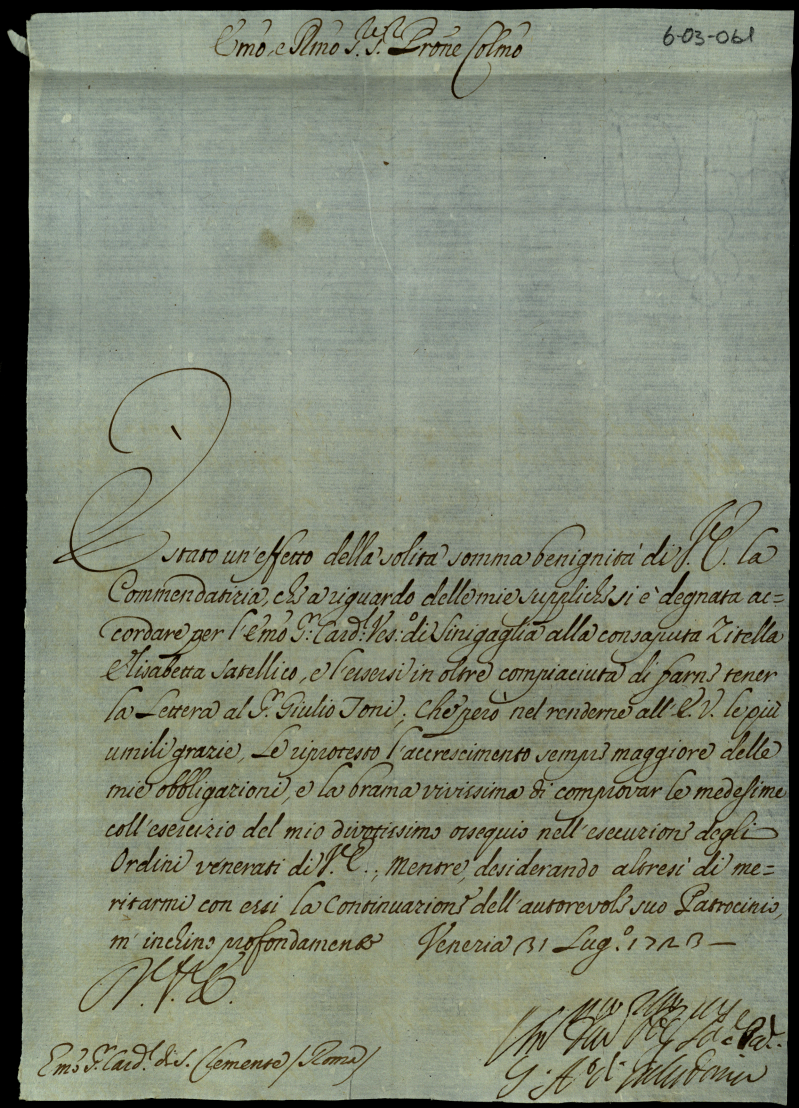 6-03-061
Emo, e Rmo Sr. Sr. Prone Colmo
È stato un'effetto della solita somma benignità di V. E. la
Commendatizia, che a riguardo delle mie suppliche si è degnata ac=
cordare per l'Emo Sr. Card.l Ves.o di Sinigaglia alla consaputa Zitella
Elisabetta Satellico, e l'essersi in oltre compiaciuta di farne tener
la Lettera al Sr. Giulio Toni; che però nel renderne all'E. V. le più
umili grazie, Le riprotesto l'accrescimento sempre maggiore delle
mie obbligazioni, e la brama vivissima di comprovar le medesime
coll'esercizio del mio divotissimo ossequio nell'esecuzione degli
Ordini venerati di V. E.; Mentre, desiderando altresì di me=
ritarmi con essi la Continuazione dell'autorevole suo Patrocinio,
m'inchino profondamente Venezia 31 Lug.o 1723
V. E.
Emo Sr. Card.l di S. Clemente / Roma /